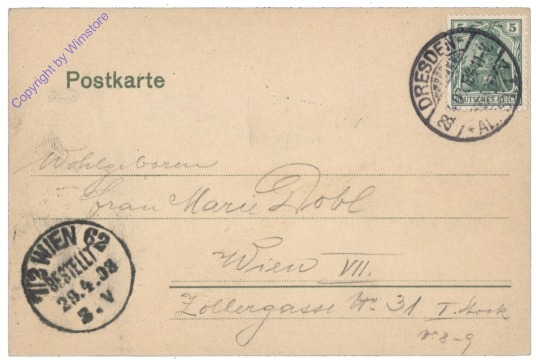 Copyright by Wimstore
Postkarte
DRESDEN-
5 5
DEUTSCHES REICH
Wohlgeboren
Frau Marie Dobl
Wien VII.
Zollergasse No. 31 I. Stock
No 8-9
7/3 WIEN 62
BESTELLT
29.4.03
8.V